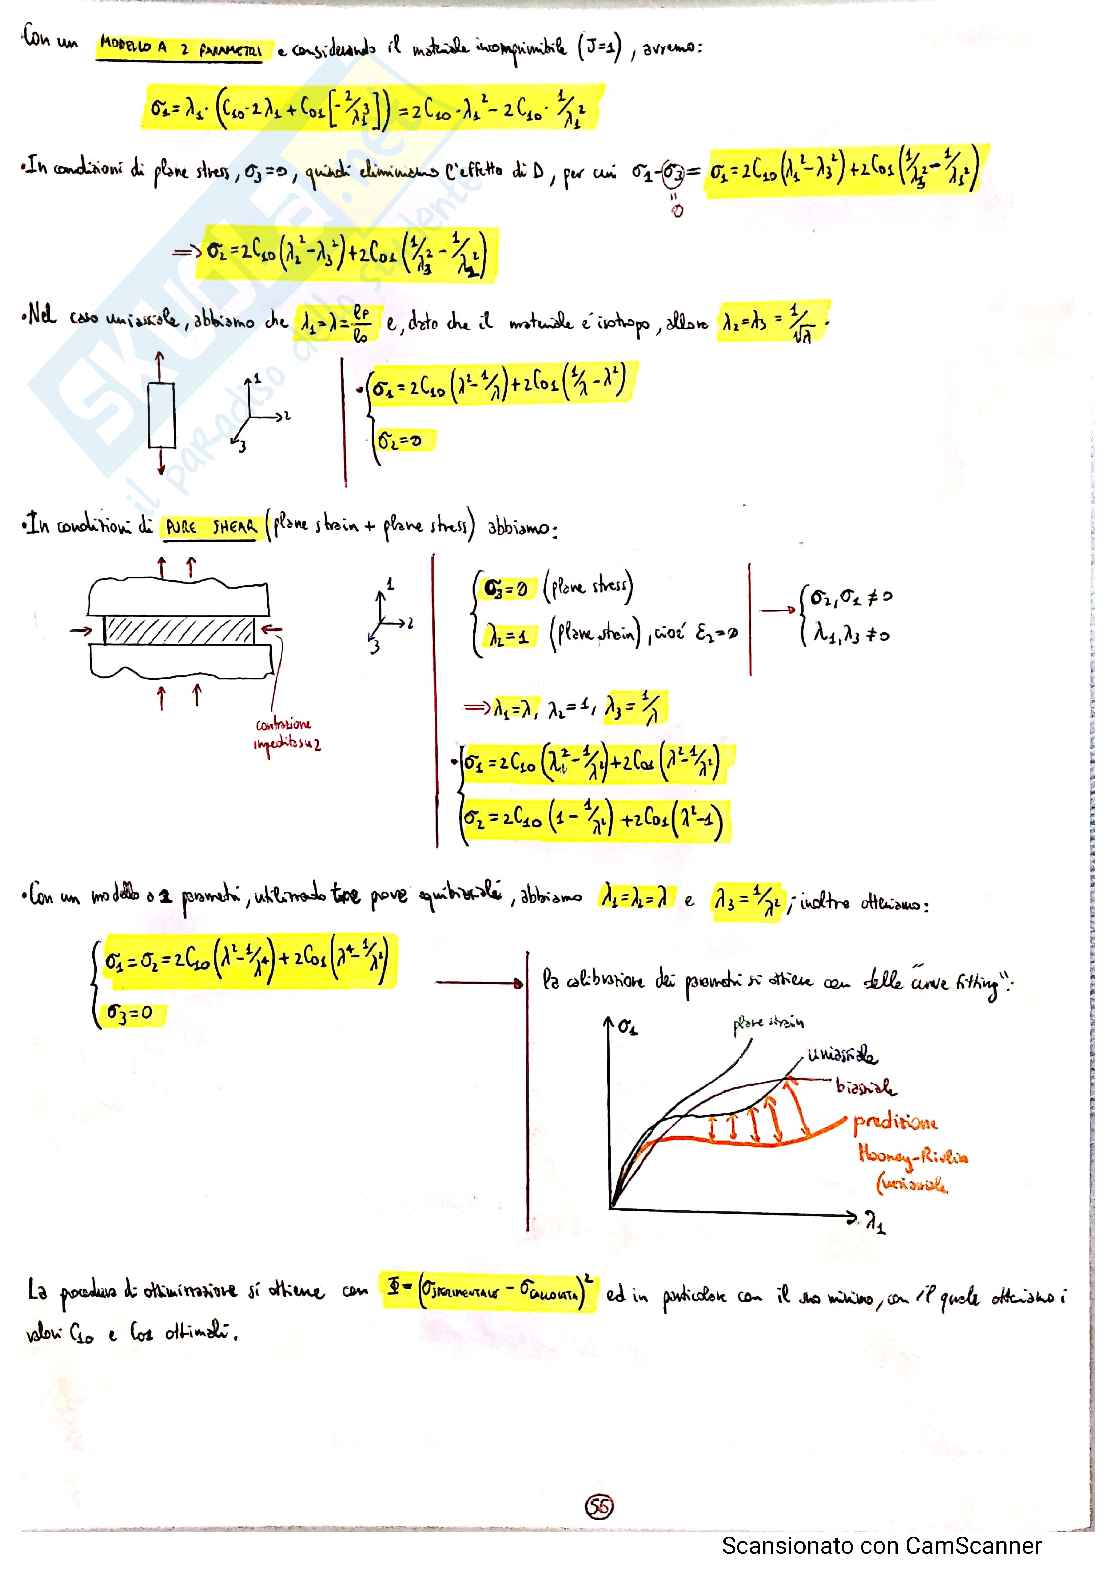 ·Con un MODELLO A 2 PARAMETRI e considerando il materiale incomprimibile (J=1), avremo:
σ₁=λ₁·(C₁₀·2λ₁+C₀₁[-2/λ₁³])=2C₁₀·λ₁²-2C₁₀·1/λ₁²
·In condizioni di plane stress, σ₃=0, quindi eliminiamo l'effetto di D, per cui σ₁-σ₃= σ₁=2C₁₀(λ₁²-λ₃²)+2C₀₁(1/λ₃²-1/λ₁²)
"
0
⟹ σ₂=2C₁₀(λ₂²-λ₃²)+2C₀₁(1/λ₃²-1/λ₂²)
·Nel caso uniassiale, abbiamo che λ₁=λ=lf/l₀ e, dato che il materiale é isotropo, allora λ₂=λ₃=1/√λ.
1
2
3
·{σ₁=2C₁₀(λ²-1/λ)+2C₀₁(1/λ-λ²)
σ₂=0
·In condizioni di PURE SHEAR (plane strain + plane stress) abbiamo:
1
2
3
contrazione
impedita su 2
{σ₃=0 (plane stress)
λ₂=1 (plane strain), cioé ε₂=0
→ {σ₂,σ₁≠0
λ₁,λ₃≠0
⟹λ₁=λ, λ₂=1, λ₃=1/λ
·{σ₁=2C₁₀(λ₁²-1/λ²)+2C₀₁(λ²-1/λ²)
σ₂=2C₁₀(1-1/λ²)+2C₀₁(λ²-1)
·Con un modello a 2 parametri, utilizzando prove equibiassiali, abbiamo λ₁=λ₂=λ e λ₃=1/λ²; inoltre otteniamo:
{σ₁=σ₂=2C₁₀(λ²-1/λ⁴)+2C₀₁(λ⁴-1/λ²)
σ₃=0
la calibrazione dei parametri si ottiene con delle "curve fitting":
σ₁
plane strain
uniassiale
biassiale
predizione
Mooney-Rivlin
(uniassiale
λ₁
La procedura di ottimizzazione si ottiene con Φ=(σSPERIMENTALE-σCALCOLATA)² ed in particolare con il suo minimo, con il quale otteniamo i
valori C₁₀ e C₀₁ ottimali.
55
Scansionato con CamScanner
SKUOLA.net
il paradiso dello studente